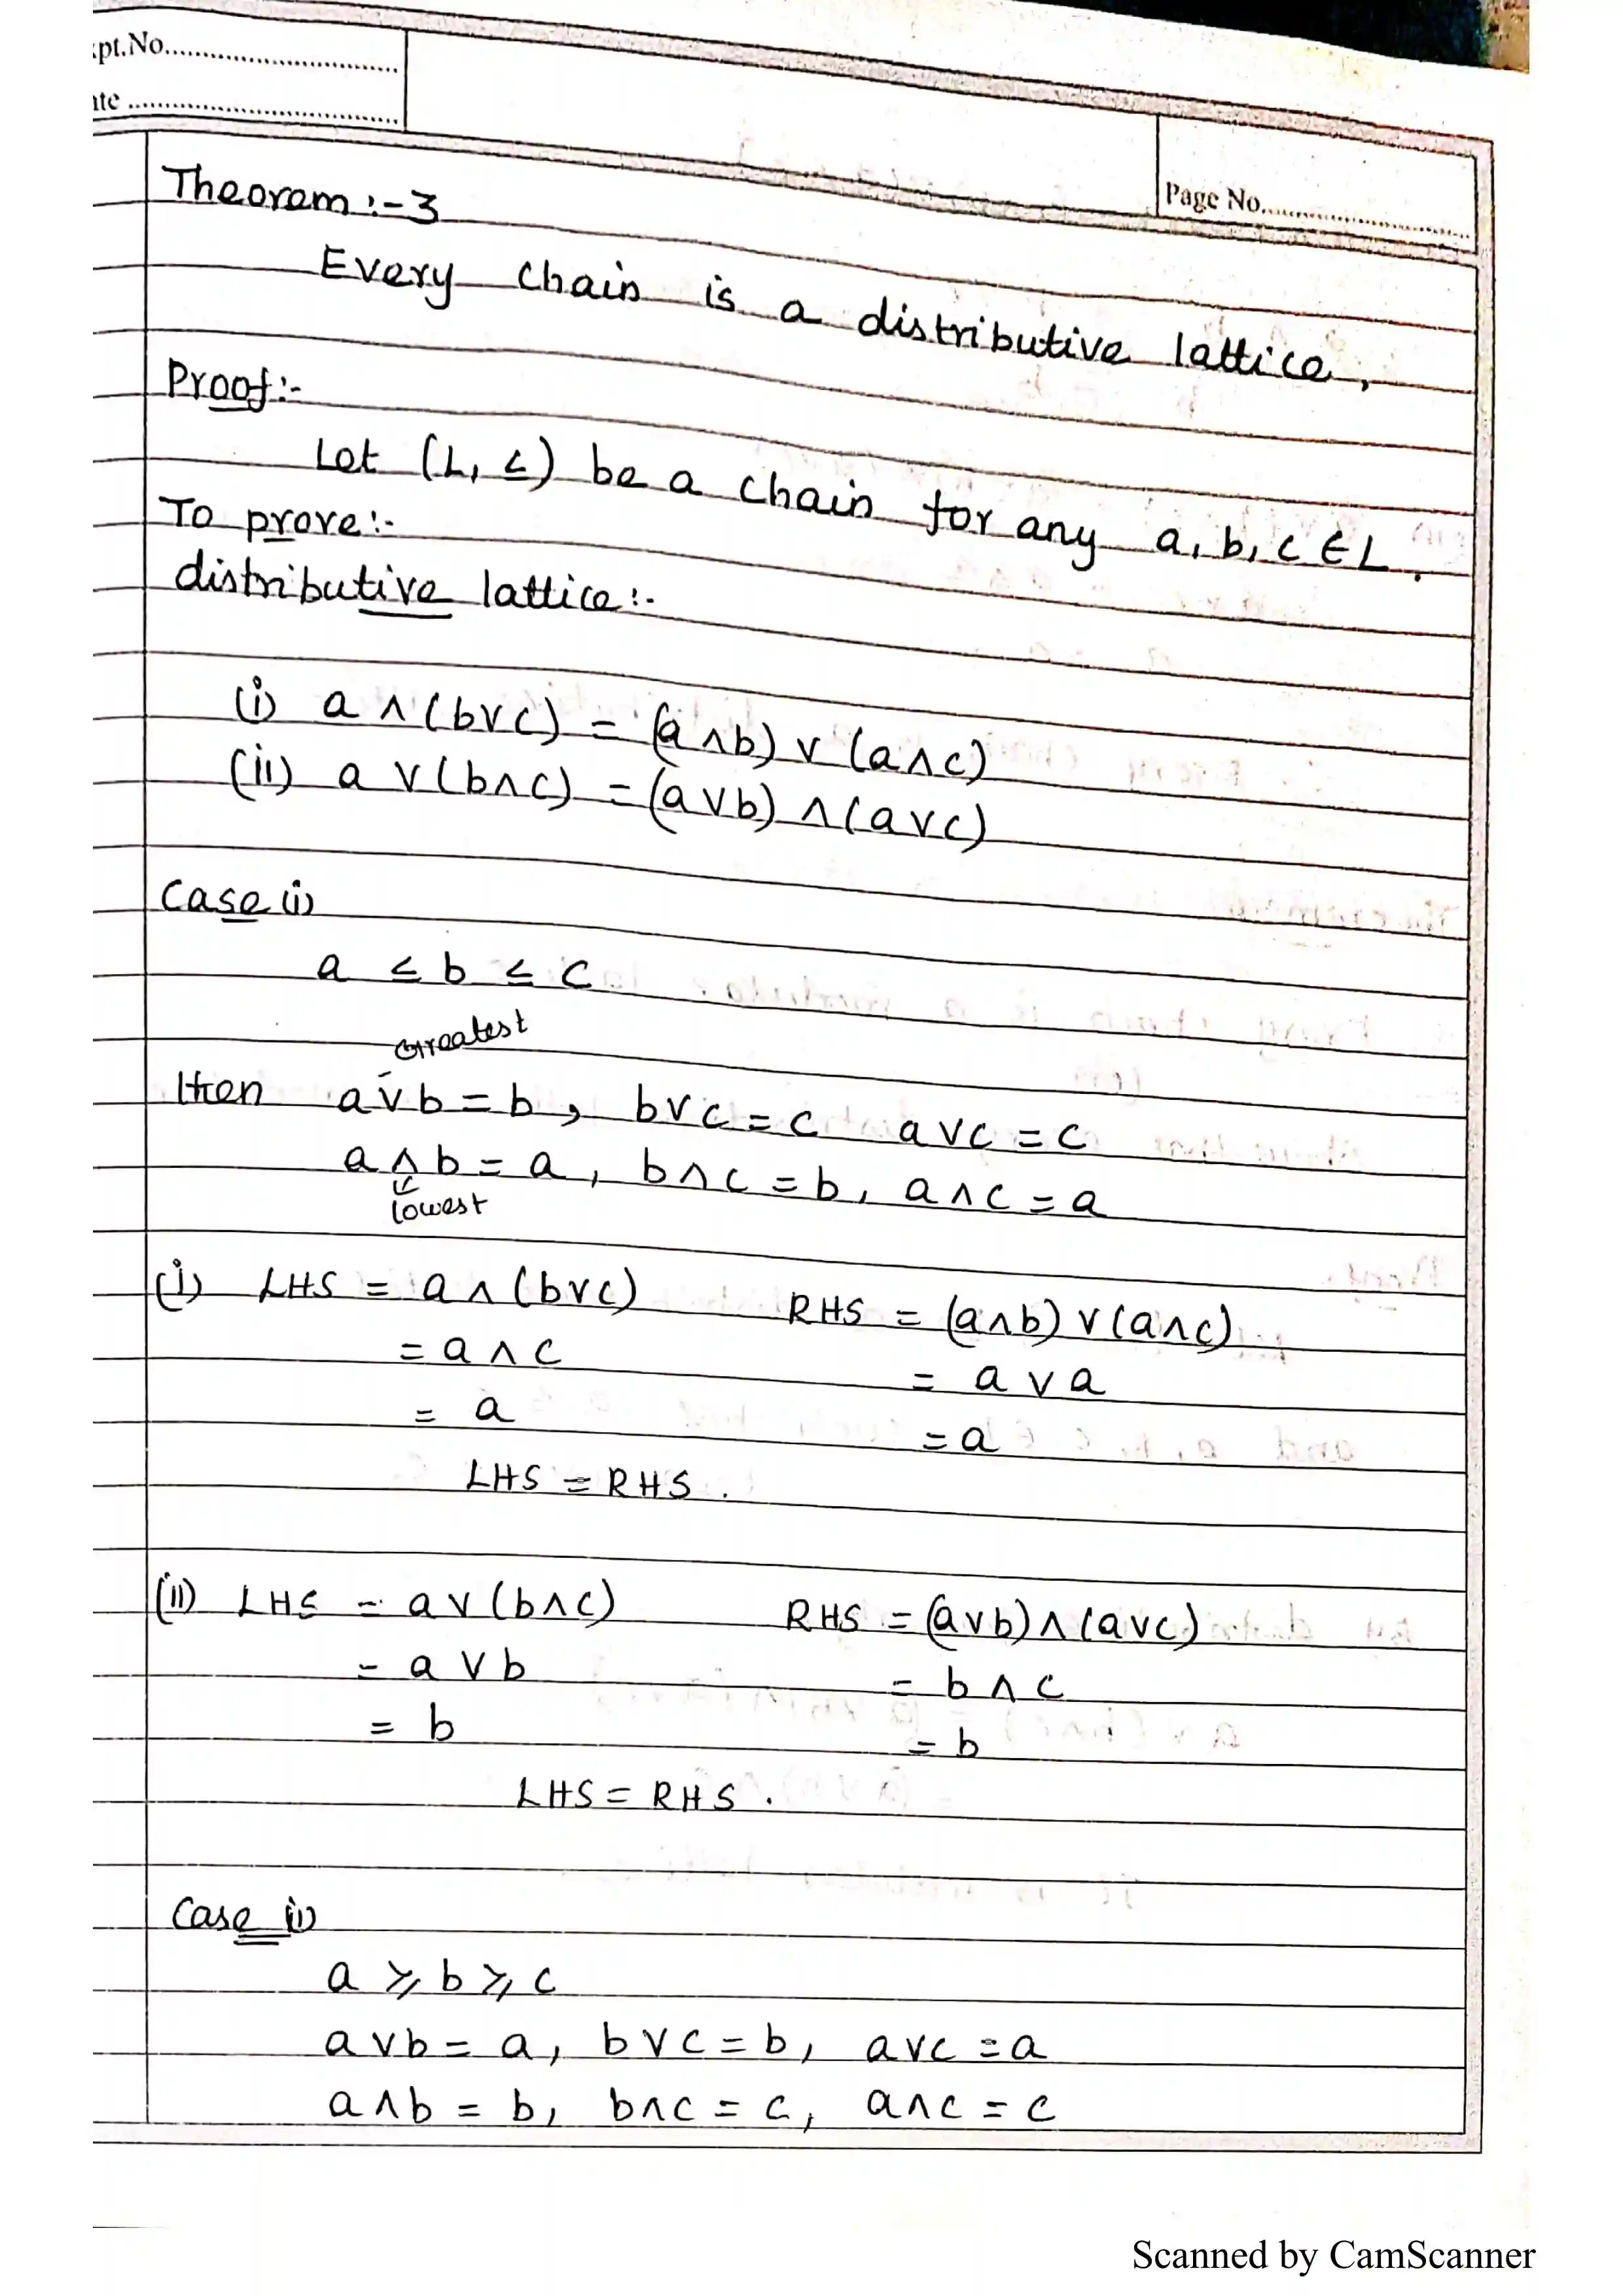 pt.No.
te
Page No.
Theorem :- 3
Every chain is a distributive lattice,
Proof :-
Let (L, ≤) be a chain for any a, b, c ∈ L.
To prove :-
distributive lattice :-
(i) a ∧ (b ∨ c) = (a ∧ b) ∨ (a ∧ c)
(ii) a ∨ (b ∧ c) = (a ∨ b) ∧ (a ∨ c)
Case (i)
a ≤ b ≤ c
Greatest
then a ∨ b = b, b ∨ c = c a ∨ c = c
a ∧ b = a, b ∧ c = b, a ∧ c = a
lowest
(i) LHS = a ∧ (b ∨ c) RHS = (a ∧ b) ∨ (a ∧ c)
= a ∧ c = a ∨ a
= a = a
LHS = RHS.
(ii) LHS = a ∨ (b ∧ c) RHS = (a ∨ b) ∧ (a ∨ c)
= a ∨ b = b ∧ c
= b = b
LHS = RHS.
Case (ii)
a ≥ b ≥ c
a ∨ b = a, b ∨ c = b, a ∨ c = a
a ∧ b = b, b ∧ c = c, a ∧ c = c
Scanned by CamScanner